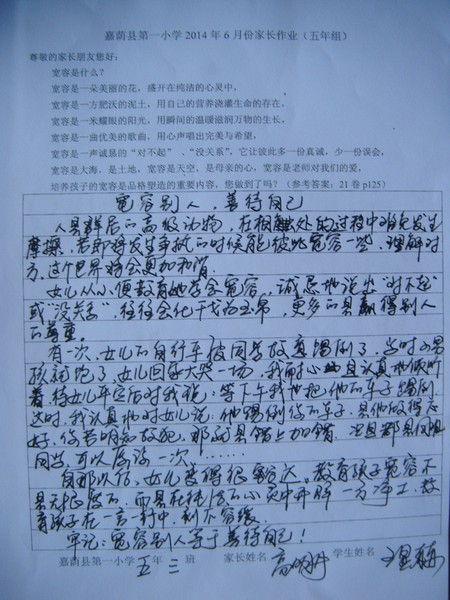 嘉荫县第一小学 2014 年 6 月份家长作业（五年组）
尊敬的家长朋友您好：
宽容是什么？
宽容是一朵美丽的花，盛开在纯洁的心灵中，
宽容是一方肥沃的泥土，用自己的营养浇灌生命的存在，
宽容是一米耀眼的阳光，用瞬间的温暖滋润万物的生长，
宽容是一曲优美的歌曲，用心声唱出完美与希望，
宽容是一声诚恳的“对不起”、“没关系”，它让彼此多一份真诚，少一份误会，
宽容是大海，是土地，宽容是天空，是母亲的心，宽容是老师对我们的爱，
培养孩子的宽容是品格塑造的重要内容，您做到了吗？（参考答案：21 卷 p125）
宽容别人，善待自己
人是群居的高级动物，在相处的过程中难免发生
摩擦，若即将发生争执的时候能彼此宽容一些，理解对
方，这个世界将会更加和谐。
女儿从小，便教育她学会宽容，诚恳地说出“对不起”
或“没关系”，往往会化干戈为玉帛，更多的是赢得别人
的尊重。
有一次，女儿的自行车被同学故意踢倒了，当时的男
孩就跑了，女儿回家大哭一场，我耐心地且认真地倾听
着待女儿平定后对我说：等下午我也把他的车子踢倒
这时，我认真地对女儿说：他踢倒你的车子，是他做得不
好，你若明知故犯，那可是错上加错，况且都是同班
同学，可以原谅一次……
自那以后，女儿变得很豁达。教育孩子宽容不
是无原则的，而是在纯洁的心灵中开辟一方净土，教
育孩子在一言一行中，刻不容缓。
牢记：宽容别人等于善待自己！
嘉荫县第一小学五年二班 家长姓名 高明丹 学生姓名